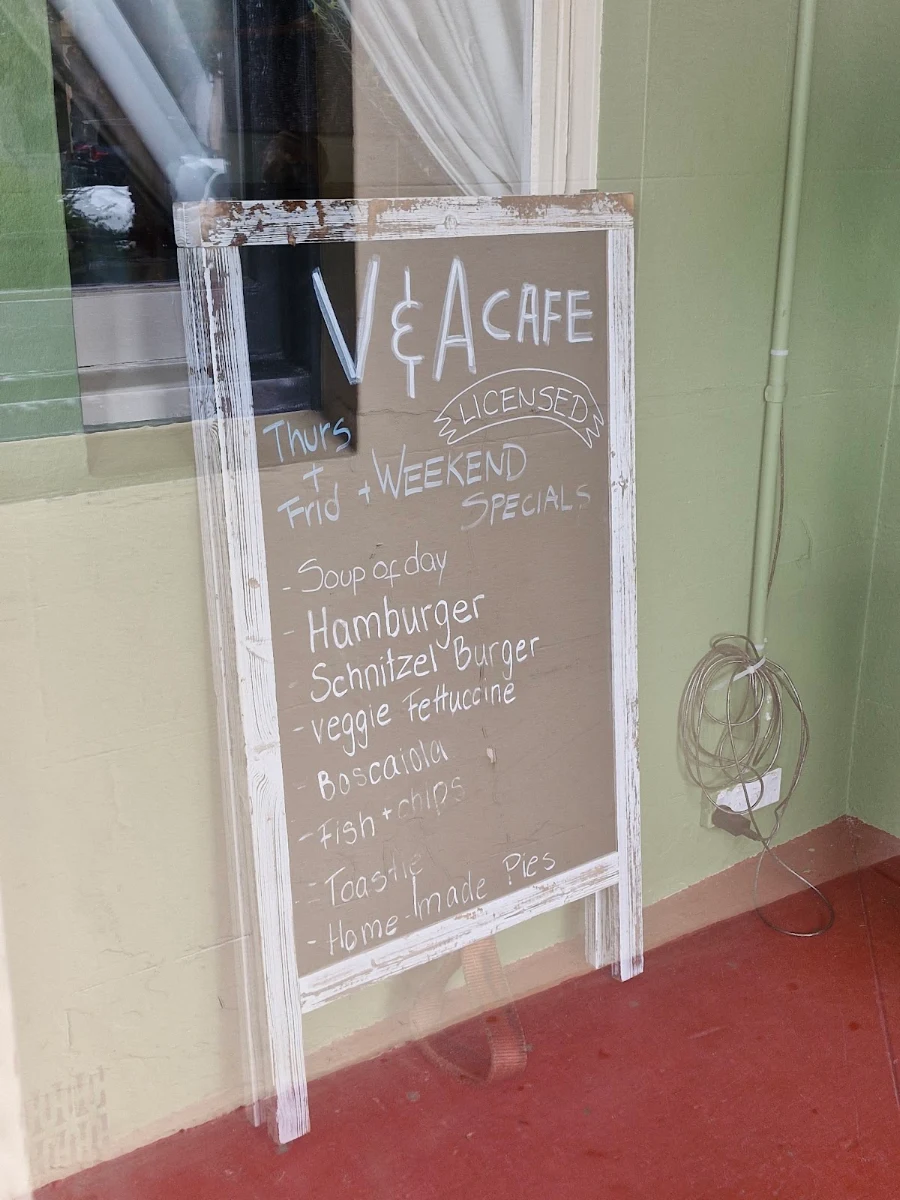 V & A CAFE
LICENSED
Thurs
+
Frid + WEEKEND
SPECIALS
- Soup of day
- Hamburger
- Schnitzel Burger
- veggie Fettuccine
- Boscaiola
- Fish + chips
- Toastie
- Home-made Pies